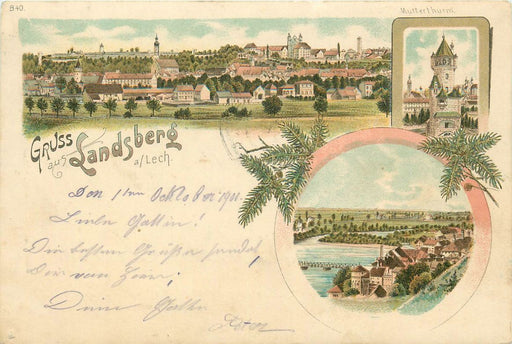 840.
Mutterthurm.
Gruss
aus Landsberg
a/Lech.
Den 1ten Ocktober 1901
Liebe Gattin!
Die besten Grüße sendet
Dir von hier
Dein Gatte